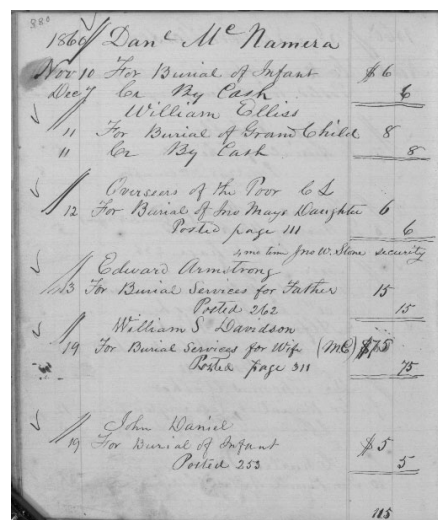 880
1860 Danl McNamera
Nov 10 For Burial of Infant $6
Dec 7 Cr By Cash 6
William Elliss
11 For Burial of Grand Child 8
11 Cr By Cash 8
Overseers of the Poor C L
12 For Burial of Jno Mays Daughter 6
Posted page 111 6
4 mo time Jno W. Stone security
Edward Armstrong
13 For Burial Services for Father 15
Posted 262 15
William S Davidson
19 For Burial Services for Wife (MC) $75
Posted page 311 75
John Daniel
19 For Burial of Infant $5
Posted 253 5
115